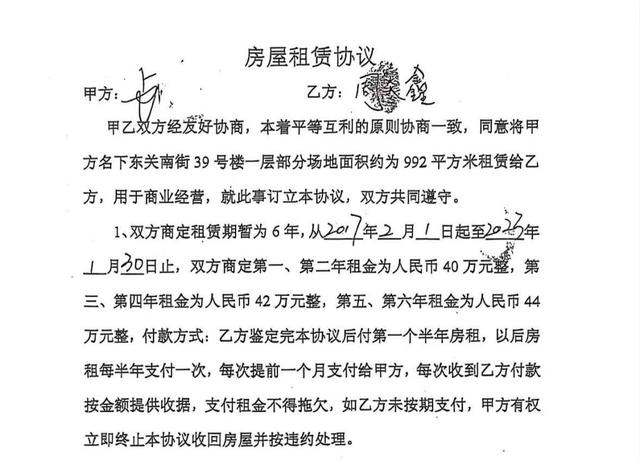 房屋租赁协议
甲方： 乙方： 鑫
甲乙双方经友好协商，本着平等互利的原则协商一致，同意将甲
方名下东关南街 39 号楼一层部分场地面积约为 992 平方米租赁给乙
方，用于商业经营，就此事订立本协议，双方共同遵守。
1、双方商定租赁期暂为 6 年，从2017年2月1日起至2023年
1月30日止，双方商定第一、第二年租金为人民币 40 万元整，第
三、第四年租金为人民币 42 万元整，第五、第六年租金为人民币 44
万元整，付款方式：乙方鉴定完本协议后付第一个半年房租，以后房
租每半年支付一次，每次提前一个月支付给甲方，每次收到乙方付款
按金额提供收据，支付租金不得拖欠，如乙方未按期支付，甲方有权
立即终止本协议收回房屋并按违约处理。